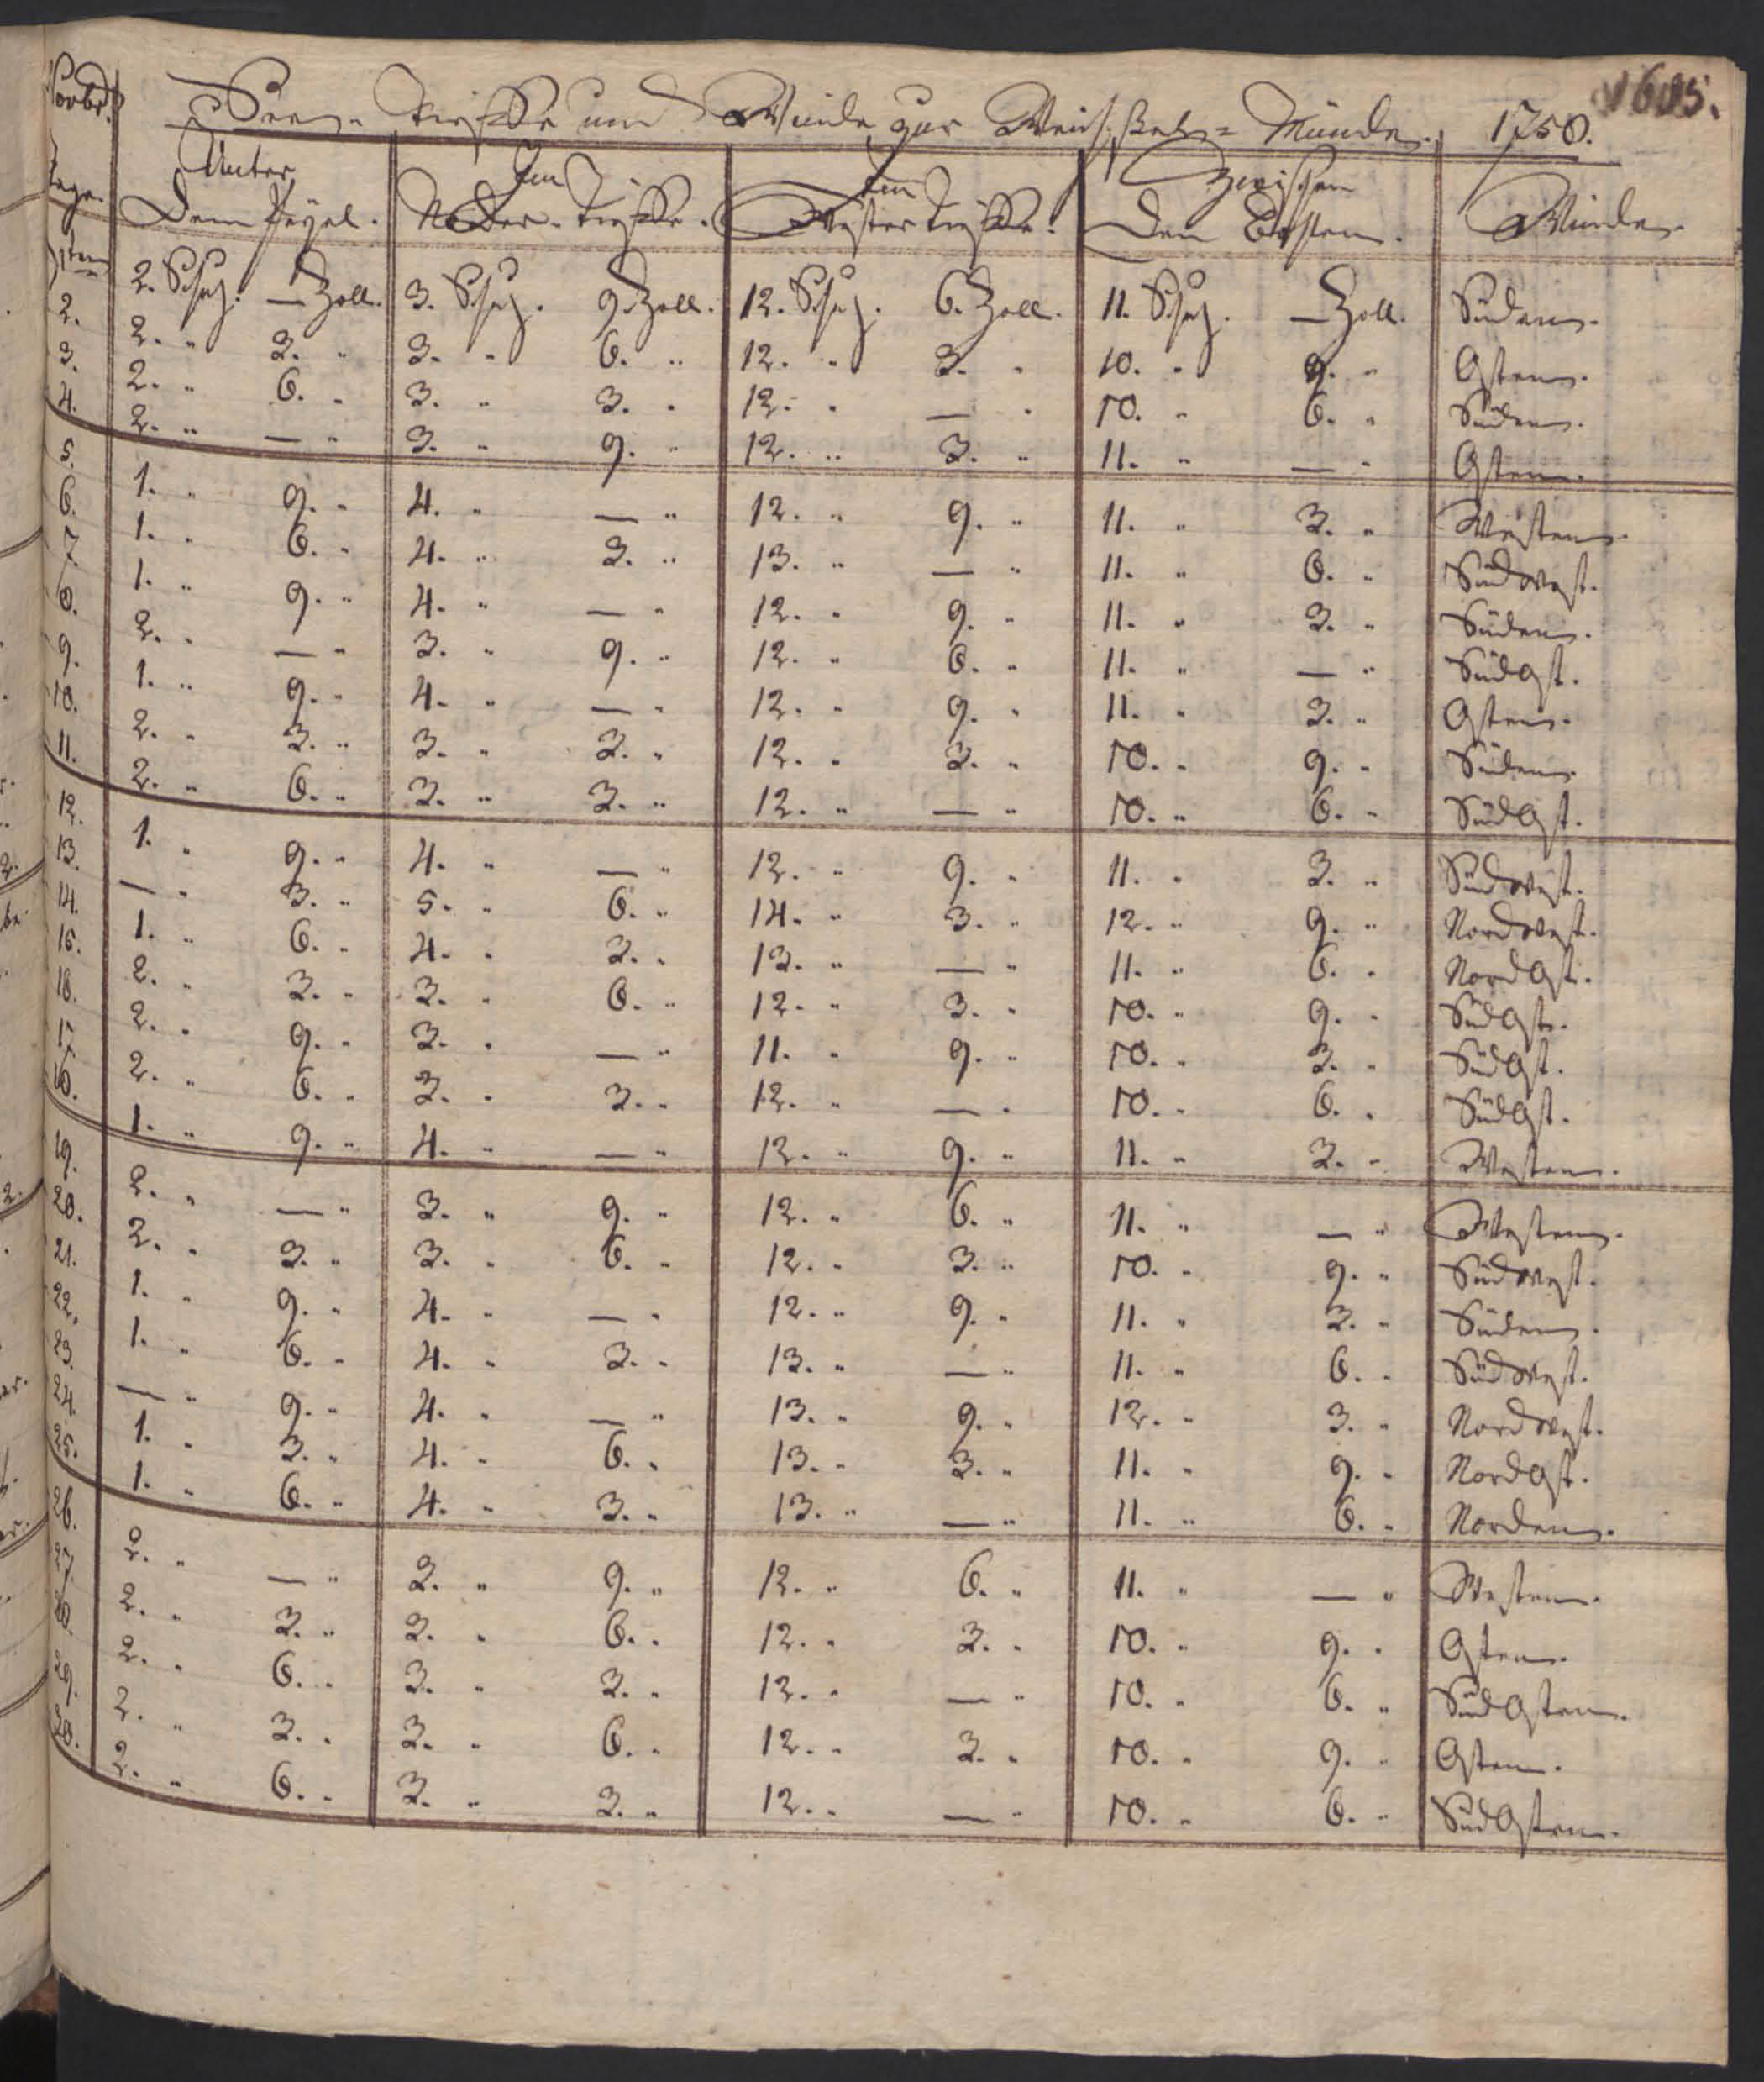 1605.
Novbr. Seen-Tieffe und Winde zur Weichselmünde. 1758.
Tage. Unter dem Pegel. Im Norder-Tieffe. Im Wester Tieffe. Zwischen den Kisten. Winde.
1ten 2. Schuh. — Zoll. 3. Schuh. 9. Zoll. 12. Schuh. 6. Zoll. 11. Schuh. — Zoll. Süden.
2. 2. " 3. " 3. " 6. " 12. " 3. " 10. " 9. " Osten.
3. 2. " 6. " 3. " 3. " 12. " — " 10. " 6. " Süden.
4. 2. " — " 3. " 9. " 12. " 3. " 11. " — " Osten.
5. 1. " 9. " 4. " — " 12. " 9. " 11. " 3. " Westen.
6. 1. " 6. " 4. " 3. " 13. " — " 11. " 6. " Südwest.
7. 1. " 9. " 4. " — " 12. " 9. " 11. " 3. " Süden.
8. 2. " — " 3. " 9. " 12. " 6. " 11. " — " SüdOst.
9. 1. " 9. " 4. " — " 12. " 9. " 11. " 3. " Osten.
10. 2. " 3. " 3. " 3. " 12. " 3. " 10. " 9. " Süden.
11. 2. " 6. " 3. " 3. " 12. " — " 10. " 6. " SüdOst.
12. 1. " 9. " 4. " — " 12. " 9. " 11. " 3. " Südwest.
13. — " 3. " 5. " 6. " 14. " 3. " 12. " 9. " Nordwest.
14. 1. " 6. " 4. " 3. " 13. " — " 11. " 6. " NordOst.
15. 2. " 3. " 3. " 6. " 12. " 3. " 10. " 9. " SüdOst.
16. 2. " 9. " 3. " — " 11. " 9. " 10. " 3. " SüdOst.
17. 2. " 6. " 3. " 3. " 12. " — " 10. " 6. " SüdOst.
18. 1. " 9. " 4. " — " 12. " 9. " 11. " 3. " Westen.
19. 2. " — " 3. " 9. " 12. " 6. " 11. " — " Westen.
20. 2. " 3. " 3. " 6. " 12. " 3. " 10. " 9. " Südwest.
21. 1. " 9. " 4. " — " 12. " 9. " 11. " 3. " Süden.
22. 1. " 6. " 4. " 3. " 13. " — " 11. " 6. " Südwest.
23. — " 9. " 4. " — " 13. " 9. " 12. " 3. " Nordwest.
24. 1. " 3. " 4. " 6. " 13. " 3. " 11. " 9. " NordOst.
25. 1. " 6. " 4. " 3. " 13. " — " 11. " 6. " Norden.
26. 2. " — " 3. " 9. " 12. " 6. " 11. " — " Westen.
27. 2. " 3. " 3. " 6. " 12. " 3. " 10. " 9. " Osten.
28. 2. " 6. " 3. " 3. " 12. " — " 10. " 6. " SüdOsten.
29. 2. " 3. " 3. " 6. " 12. " 3. " 10. " 9. " Osten.
30. 2. " 6. " 3. " 3. " 12. " — " 10. " 6. " SüdOsten.